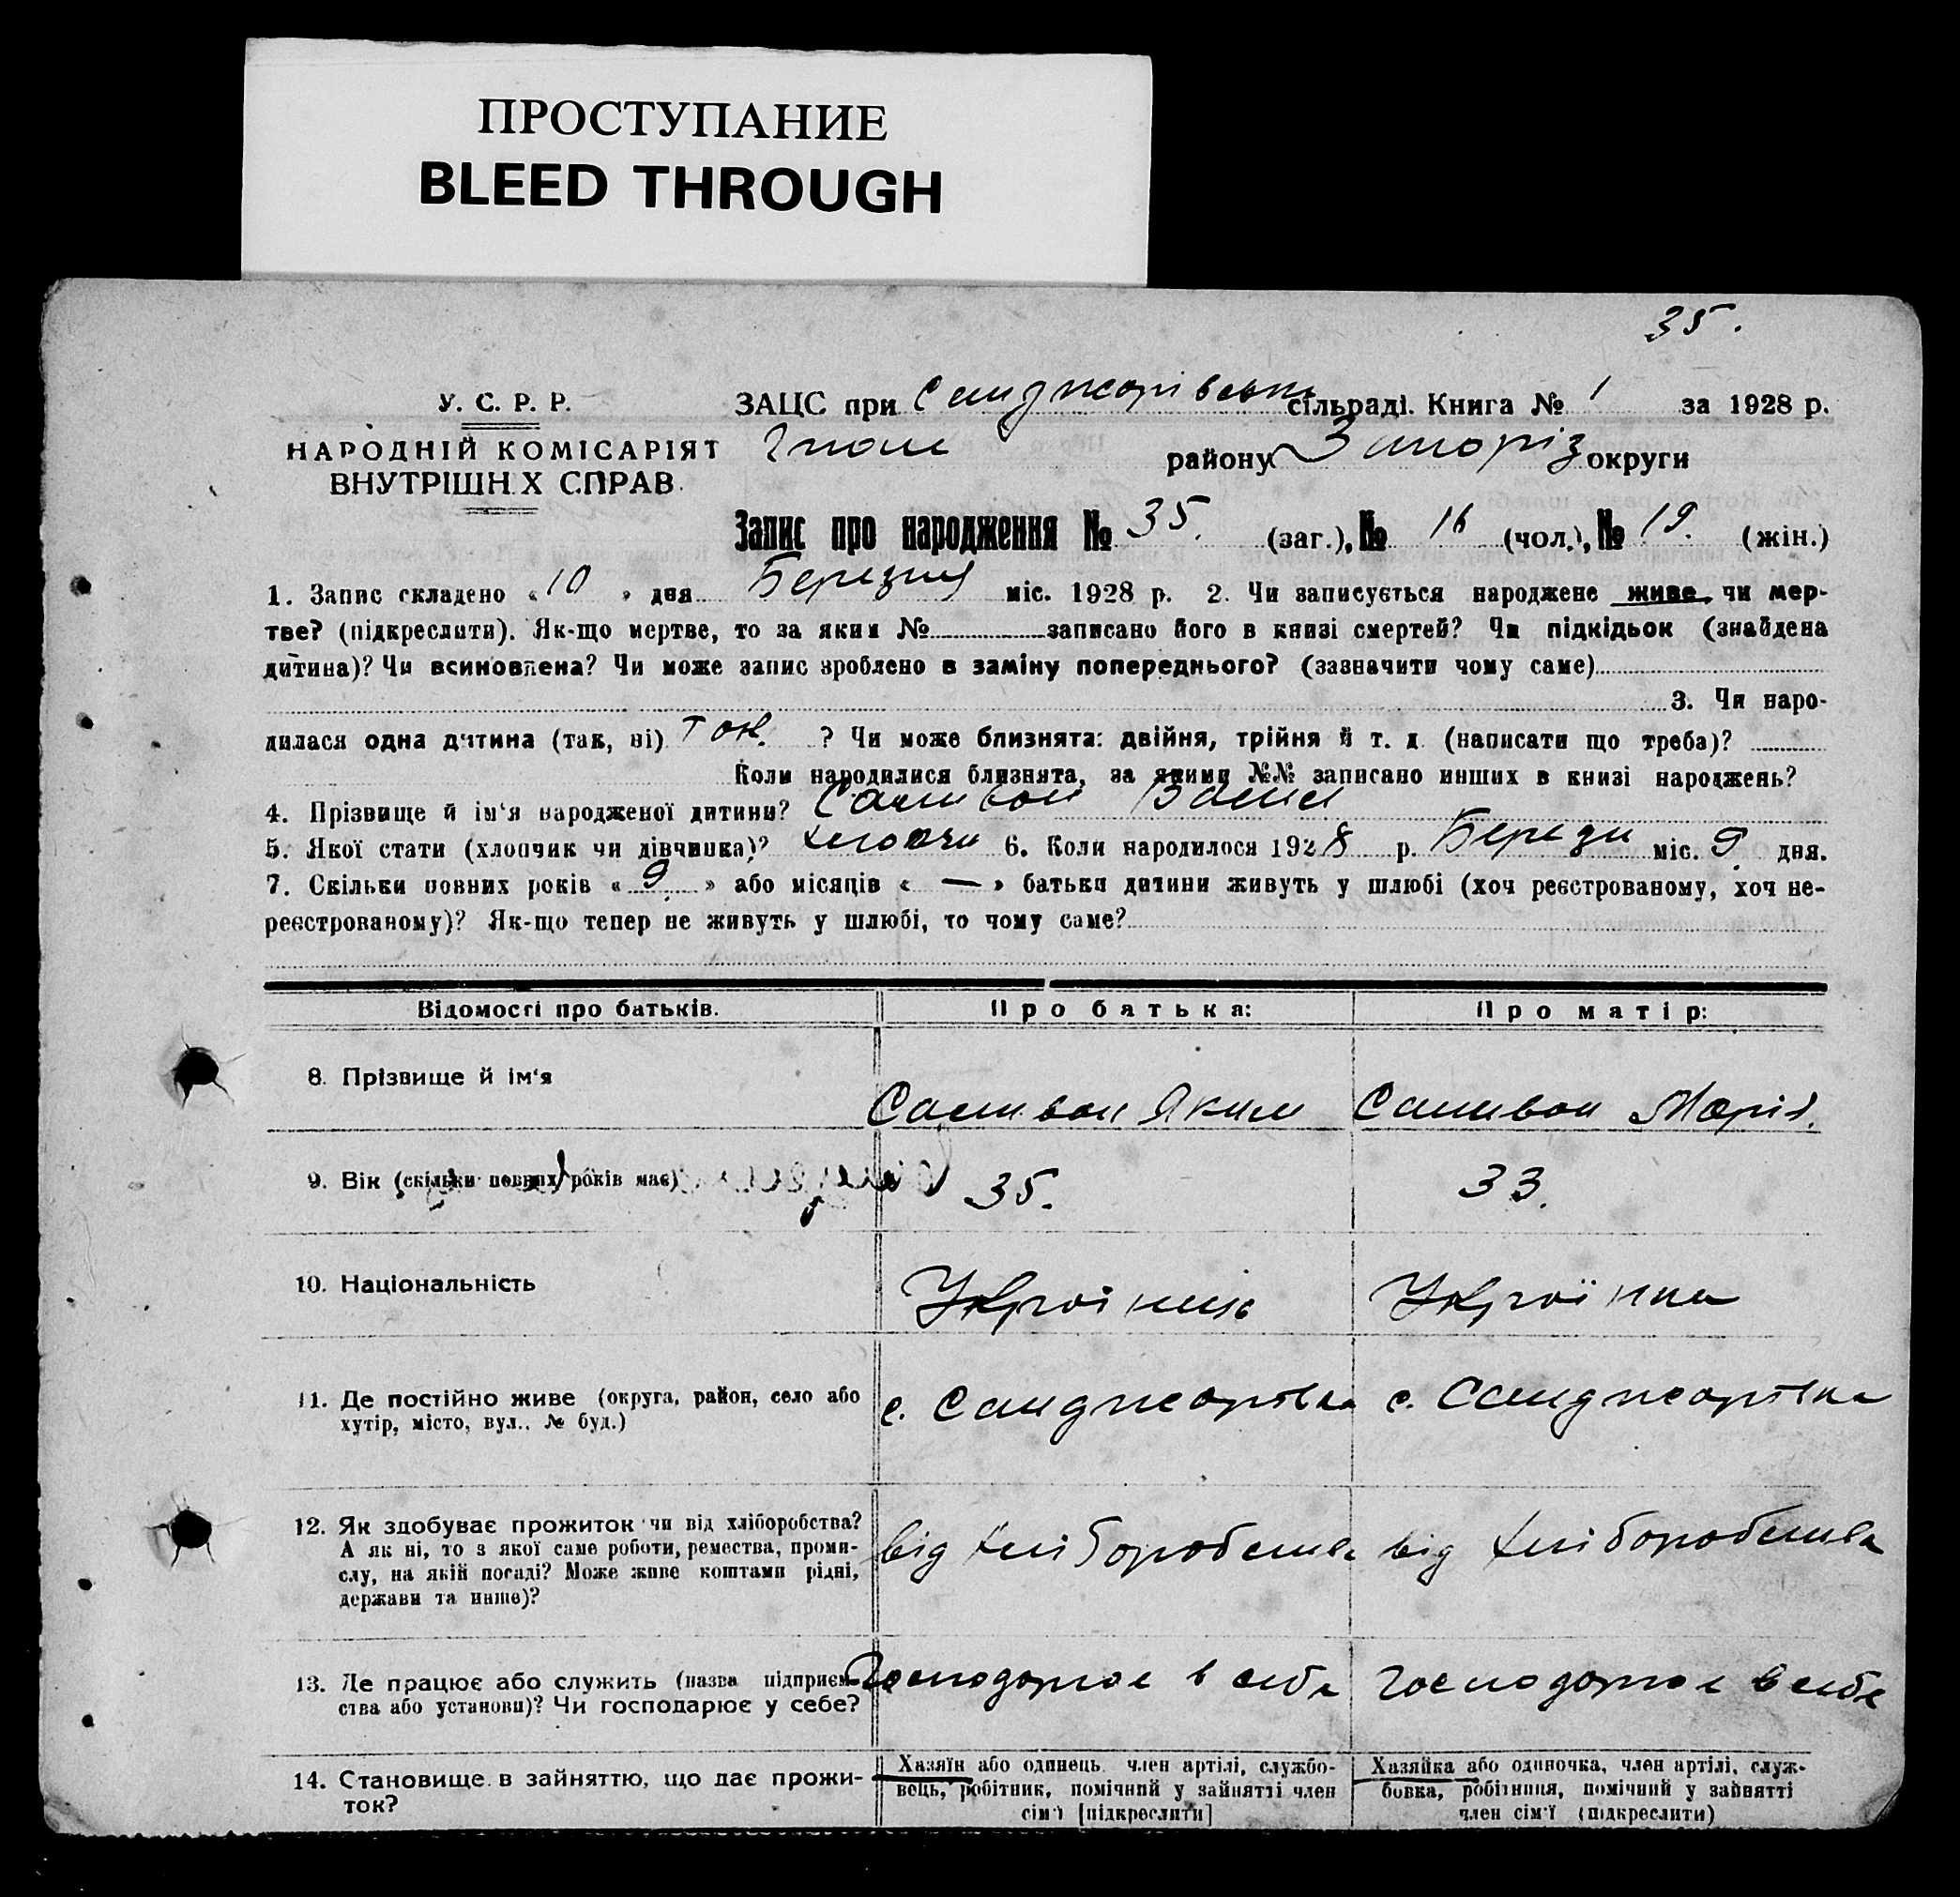 ПРОСТУПАНИЕ
BLEED THROUGH
35.
У. С. Р. Р.
НАРОДНІЙ КОМІСАРІЯТ
ВНУТРІШН.Х СПРАВ.
ЗАЦС при Санджарівськ сільраді. Книга № 1 за 1928 р.
району Запоріз округи
Запис про народження № 35. (заг.), № 16 (чол.), № 19. (жін.)
1. Запис складено « 10 » дня Березня міс. 1928 р. 2. Чи записується народжене живе, чи мер-
тве? (підкреслити). Як-що мертве, то за яким № записано його в книзі смертей? Чи підкідьок (знайдена
дитина)? Чи всиновлена? Чи може запис зроблено в заміну попереднього? (зазначити чому саме)
3. Чи наро-
дилася одна дитина (так, ні) так. ? Чи може близнята: двійня, трійня й т. д. (написати що треба)?
Коли народилися близнята, за якими №№ записано инших в книзі народжень?
4. Прізвище й ім'я народженої дитини? Саливон
5. Якої стати (хлопчик чи дівчинка)? хлопчи 6. Коли народилося 1928 р. Березн міс. 9 дня.
7. Скільки повних років « 9 » або місяців « — » батьки дитини живуть у шлюбі (хоч реєстрованому, хоч не-
реєстрованому)? Як-що тепер не живуть у шлюбі, то чому саме?
Відомості про батьків.
Про батька:
Про матір:
8. Прізвище й ім'я
Саливон Яким
Саливон Марія.
9. Вік (скільки повних років має)
35.
33.
10. Національність
Українець
Українка
11. Де постійно живе (округа, район, село або
хутір, місто, вул., № буд.)
с. Санджарівка
с. Санджарівка
12. Як здобуває прожиток чи від хліборобства?
А як ні, то з якої саме роботи, ремества, проми-
слу, на якій посаді? Може живе коштами рідні,
держави та инше)?
від хліборобства
від хліборобства
13. Де працює або служить (назва підприєм-
ства або установи)? Чи господарює у себе?
Господарює в себе
Господарює в себе
14. Становище в зайняттю, що дає прожи-
ток?
Хазяїн або одинець, член артілі, службо-
вець, робітник, помічний у зайнятті член
сім'ї [підкреслити]
Хазяйка або одиночка, член артілі, служ-
бовка, робітниця, помічний у зайнятті
член сім'ї (підкреслити)